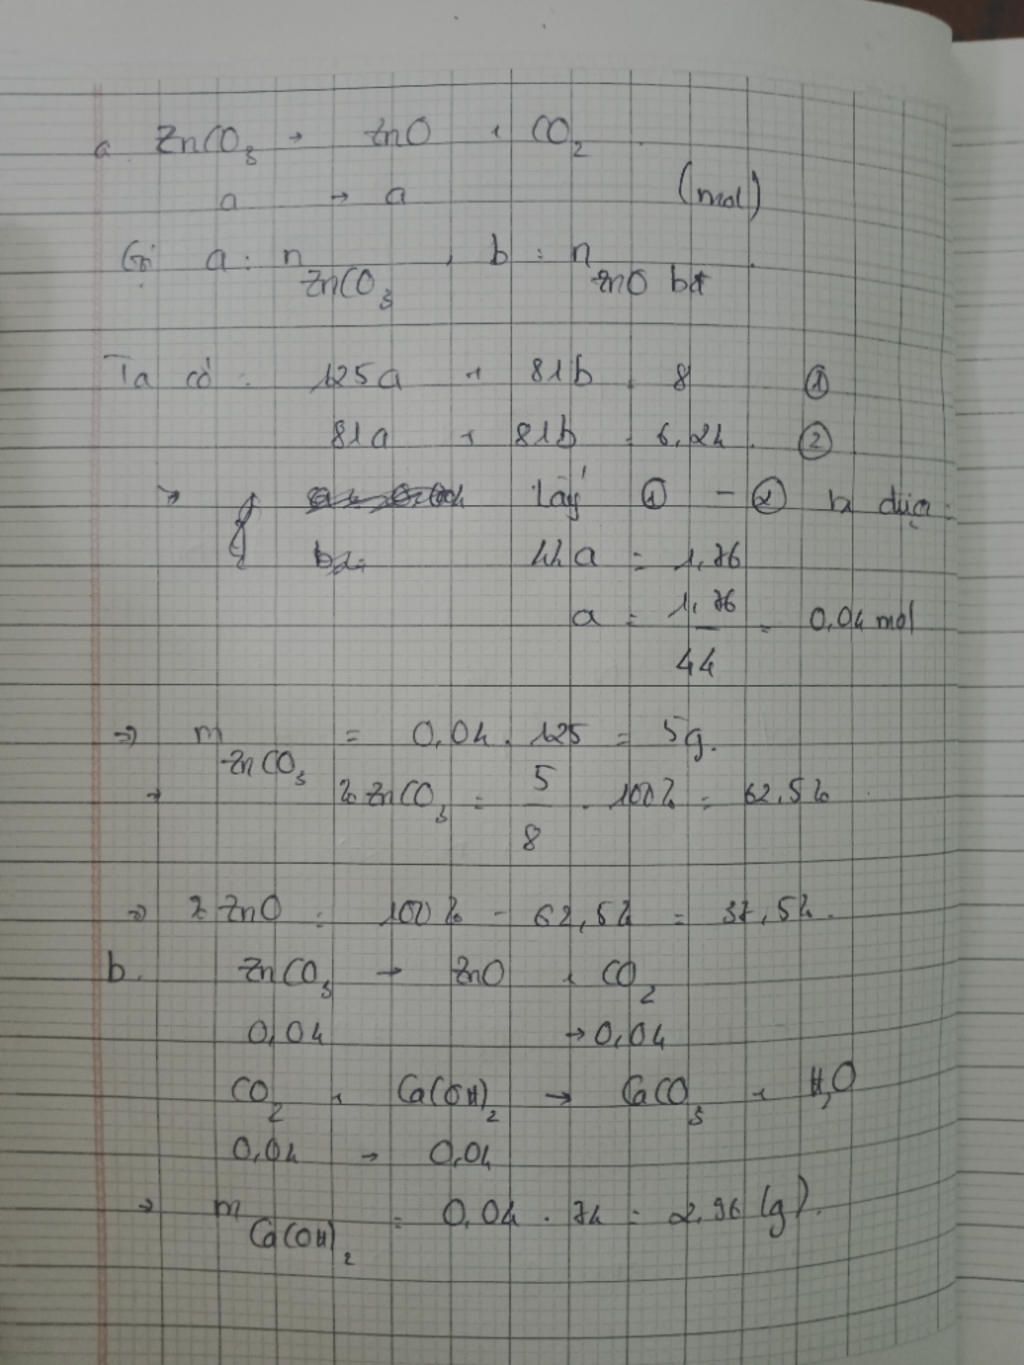 a. ZnCO3 → ZnO + CO2
a → a (mol)
Gọi a : n ZnCO3 , b : n ZnO bđ
Ta có : 125a + 81b = 8 ①
81a + 81b = 6,24 ②
→ Lấy ① - ② ta được :
44a = 1,76
a = 1,76 / 44 = 0,04 mol
→ m ZnCO3 = 0,04 . 125 = 5g.
→ % ZnCO3 = 5/8 . 100% = 62,5%
→ % ZnO = 100% - 62,5% = 37,5%.
b. ZnCO3 → ZnO + CO2
0,04 → 0,04
CO2 + Ca(OH)2 → CaCO3 + H2O
0,04 → 0,04
→ m Ca(OH)2 = 0,04 . 74 = 2,96 (g).